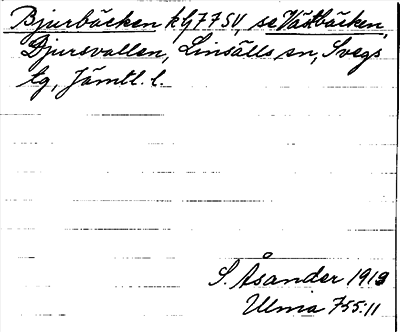 Bjurbäcken kly 775V, se Västbäcken,
Djursvallen, Linsälls sn, Svegs
tg, Jämtl. l.
S. Åsander 1919
Ulma 755:11